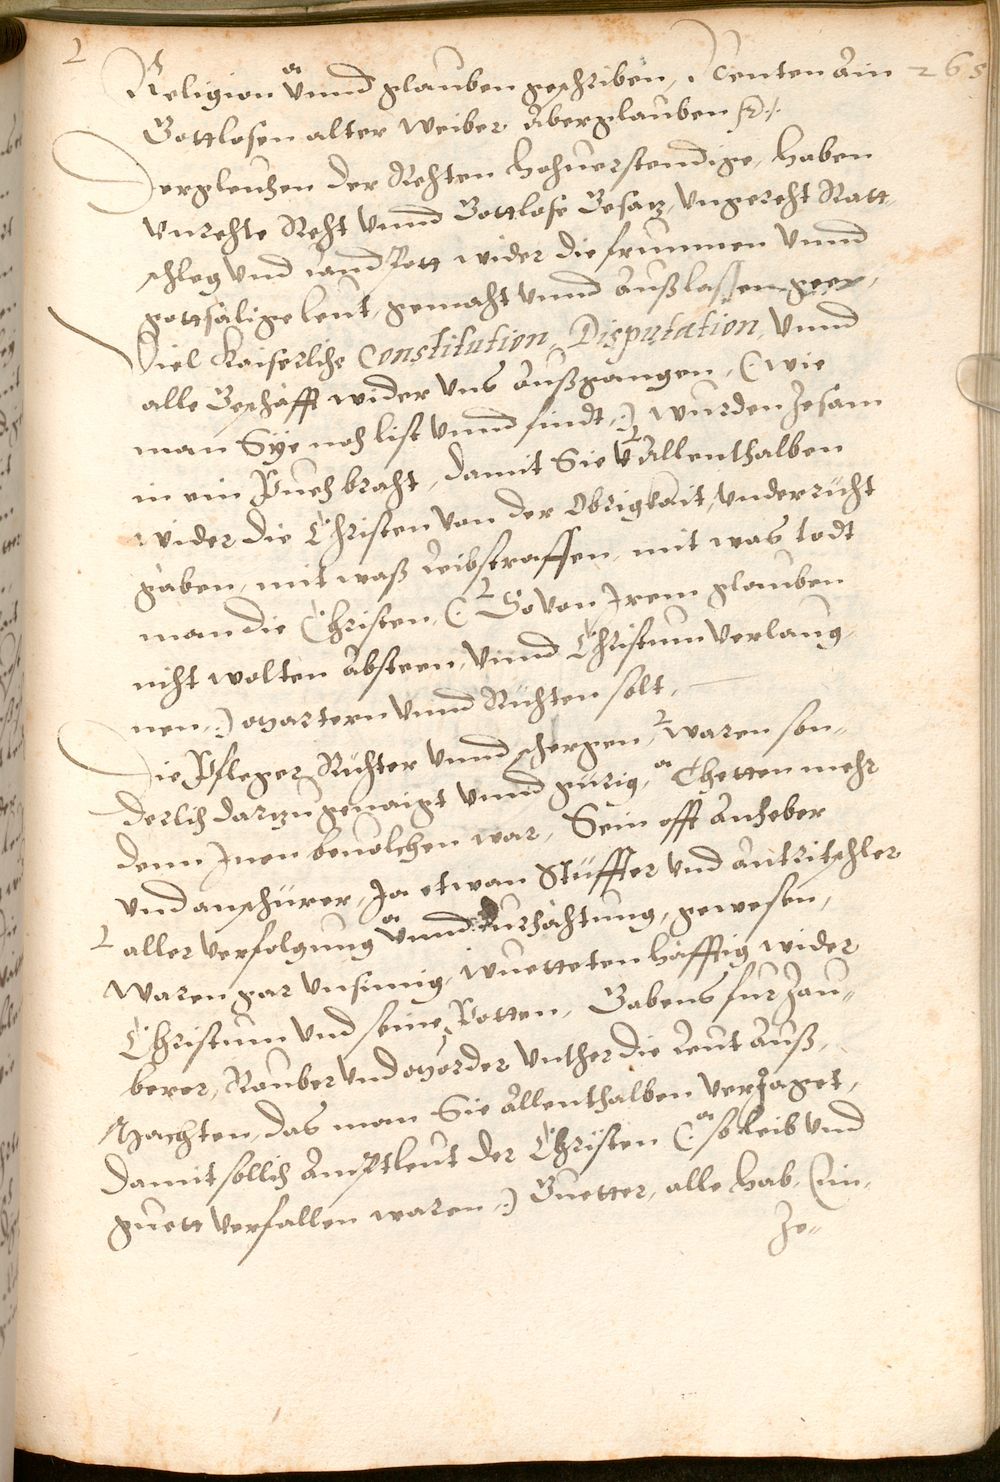 265
Religion vnnd glauben geschriben, Nenten Ain
Gottlosen alter Weiber Aberglauben
Dergleichen der Rehten hohuerstendige, haben
vnrehte Reht vnnd Gottlose Gesatz, vngereht Ratt
schleg vnd landPott wider die frummen vnnd
gottsälige leut, gemaht vnnd Außlassen geer,
Viel Kaiserliche Constitution, Disputation, vnnd
alle Geschäfft wider vns Außgangen, (: Wie
man Sÿe noh list vnnd findt, :) wurden Zesam
in ein Puech braht, damit Sie Allenthalben
wider die Christen von der Obrigkait, vnderricht
gäben, mit waß leibstraffen, mit was todt
man die Christen, (: So von Irem glauben
niht wolten Absteen, vnnd Christum verlaug-
nen, :) Martern vnnd Richten solt,
Die Pfleger, Richter vnnd schergen, waren son-
derlich darzu genaigt vnnd girig, Thetten mehr
denn Inen beuolchen war, Sein offt Anheber
vnd anschürer, Ja etwan Stüffter vnd Antritschler
aller verfolgung vnnd durchächtung, gewesen,
Waren gar vnsinnig, wuetteten häfftig wider
Christum vnd seine Potten, Gabens fur Zau-
berer, Rauber vnd Morder vnther die leut Auß,
Machten, das man Sie Allenthalben verJaget,
damit sollich AmPtleut der Christen (: so leib vnd
guett verfallen waren, :) Guetter, alle hab, ein,
Ze-